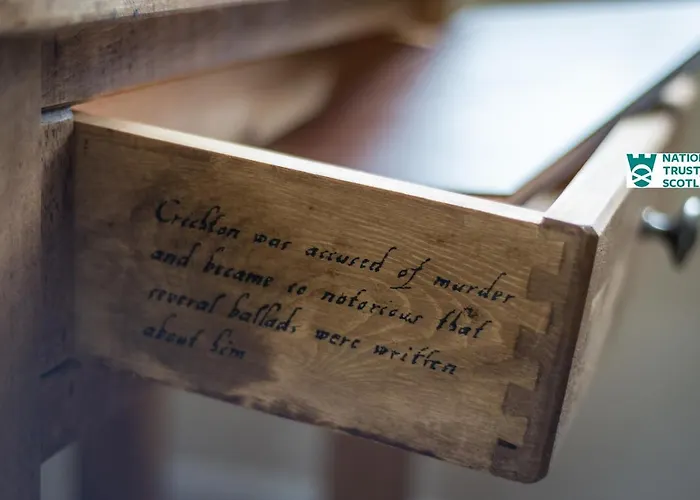 Crichton was accused of murder
and became so notorious that
several ballads were written
about him
NATIO
TRUST
SCOTL